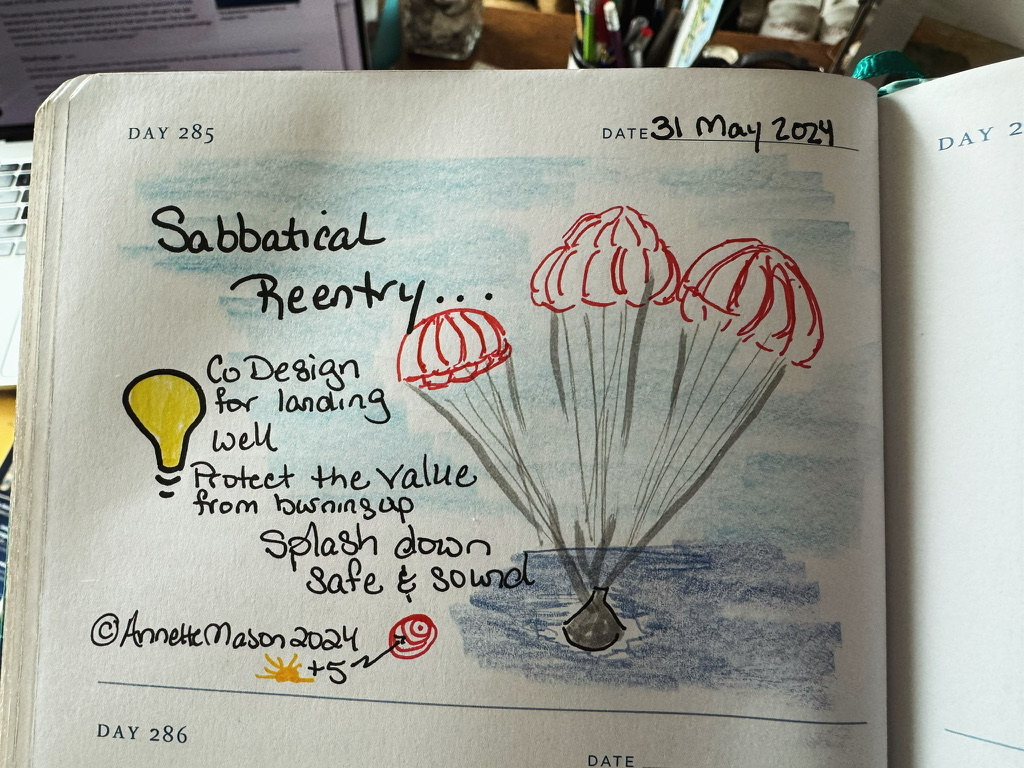 DAY 285
DATE 31 May 2024
Sabbatical
Reentry...
Co Design
for landing
well
Protect the value
from burning up
Splash down
safe & sound
© Annette Mason 2024
+5
DAY 286
DATE
DAY 2